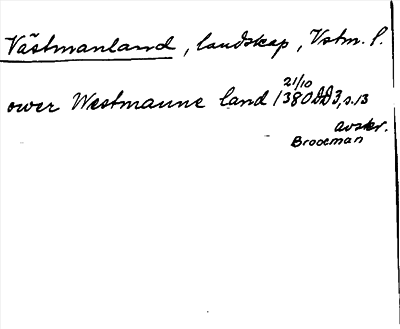 Västmanland, landskap, Vstm. l.
ower Westmanne land 21/10 1380 DD3, s. 13
avskr.
Brooeman